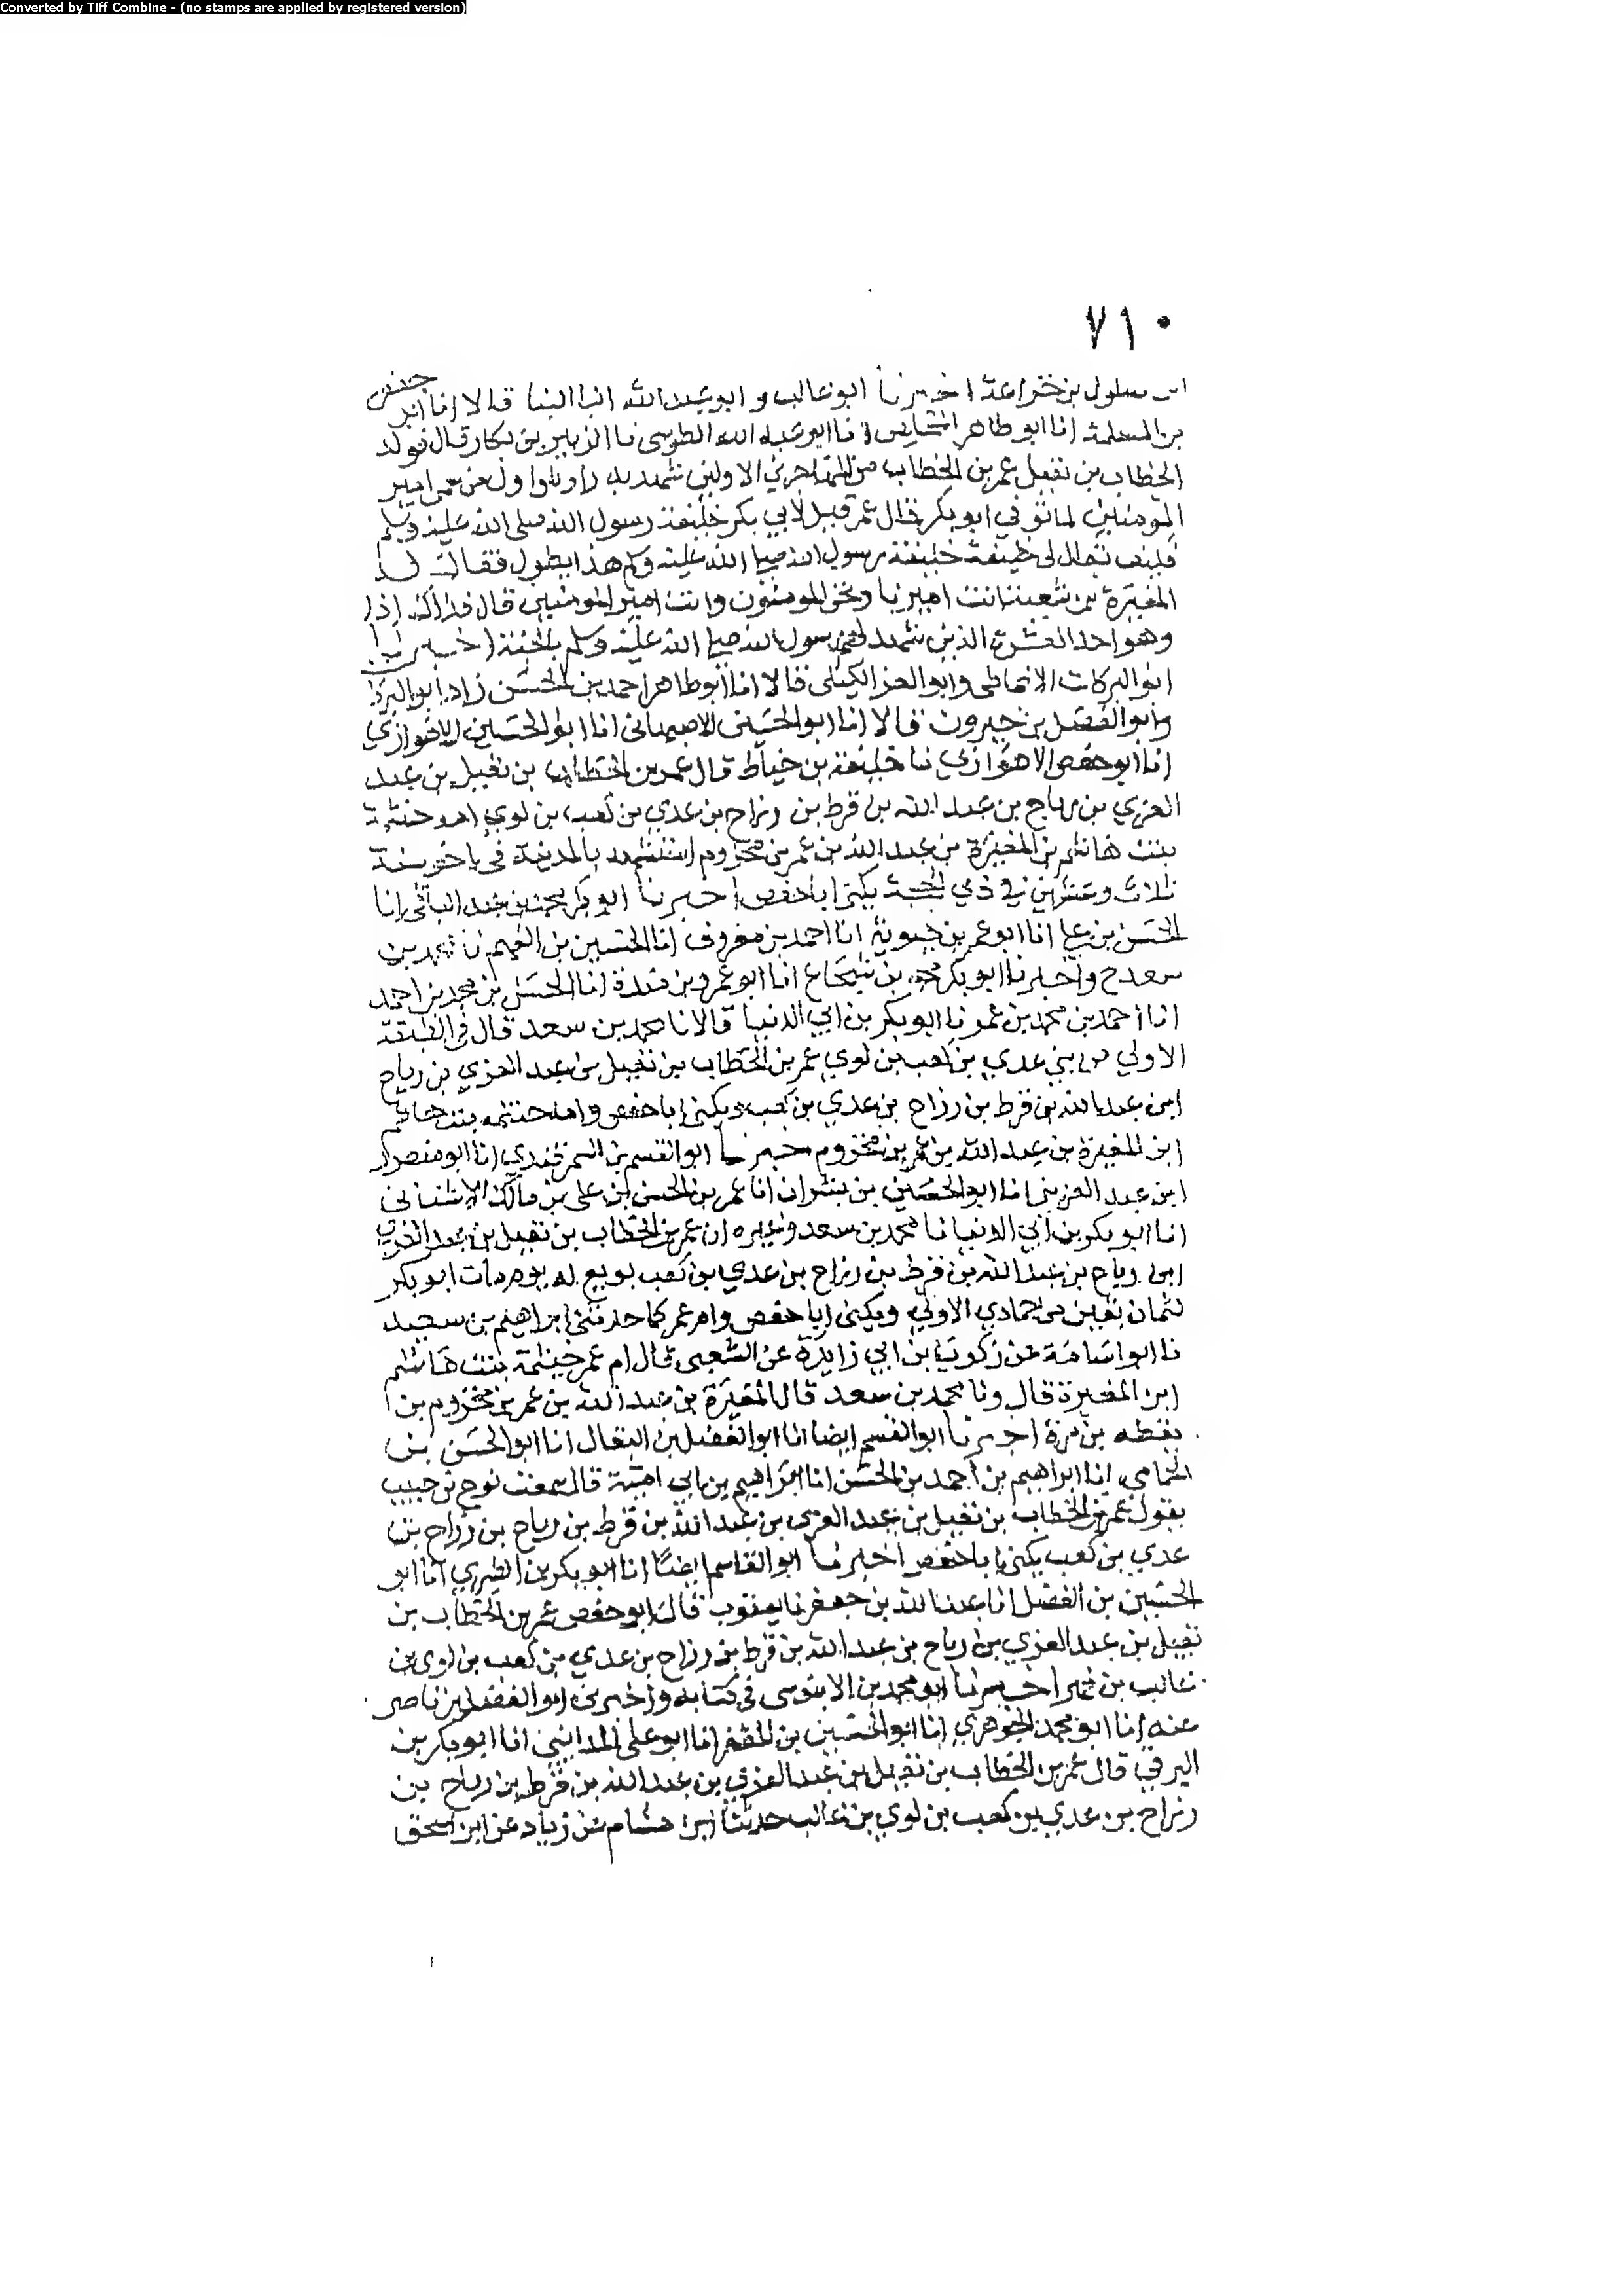 Converted by Tiff Combine - (no stamps are applied by registered version)
٧١٠
بن سلول بن خزاعة اخبرنا ابو غالب و ابو عبد الله ابنا البنا قالا انا ابو جعفر
بن المسلمة انا ابو طاهر المخلص انا ابو عبد الله الطوسي نا الزبير بن بكار قال فولد
الخطاب بن نفيل عمر بن الخطاب من المهاجرين الاولين شهد بدرا وما و اول من سمي امير
المومنين لما توفي ابو بكر قال عمر قيل لابي بكر خليفة رسول الله صلى الله عليه وسلم
فكيف يقال لي خليفة خليفة رسول الله صلى الله عليه وسلم هذا يطول فقال له
المغيرة بن شعبة انت اميرنا ونحن المومنون وانت امير المومنين قال فذاك اذا
وهو احد العشرة الذين شهد لهم رسول الله صلى الله عليه وسلم بالجنة اخبرنا
ابو البركات الانماطي وابو العز الكيلي قالا انا ابو طاهر احمد بن الحسن زاد ابو البركات
وابو الفضل بن خيرون قالا انا ابو الحسين الاصبهاني انا ابو الحسين الاهوازي
انا ابو حفص الاهوازي نا خليفة بن خياط قال عمر بن الخطاب بن نفيل بن عبد
العزي بن رياح بن عبد الله بن قرط بن رزاح بن عدي بن كعب بن لوي امه حنتمة
بنت هاشم بن المغيرة بن عبد الله بن عمر بن مخزوم استشهد بالمدينة في اخر سنة
ثلاث وعشرين في ذي الحجة يكنى ابا حفص اخبرنا ابو بكر محمد بن عبد الباقي انا
الحسن بن علي انا ابو عمر بن حيوية انا احمد بن معروف انا الحسين بن الفهم نا محمد بن
سعد ح واخبرنا ابو بكر محمد بن شجاع انا ابو عمرو بن مندة انا الحسن بن محمد بن احمد
انا احمد بن محمد بن عمر نا ابو بكر بن ابي الدنيا قالا نا محمد بن سعد قال في الطبقة
الاولي من بني عدي بن كعب بن لوي عمر بن الخطاب بن نفيل بن عبد العزي بن رياح
ابن عبد الله بن قرط بن رزاح بن عدي بن كعب ويكنى ابا حفص وامه حنتمه بنت هاشم
ابن المغيرة بن عبد الله بن عمر بن مخزوم اخبرنا ابو القسم بن السمرقندي انا ابو منصور
ابن عبد العزيز انا ابو الحسين بن بشران انا عمر بن الحسن بن علي بن مالك الاشناني
انا ابو بكر بن ابي الدنيا نا محمد بن سعد وغيره ان عمر بن الخطاب بن نفيل بن عبد العزي
ابن رياح بن عبد الله بن قرط بن رزاح بن عدي بن كعب بويع له يوم مات ابو بكر
لثمان بقين من جمادي الاولي ويكنى ابا حفص وام عمر كما حدثني ابراهيم بن سعيد
نا ابو اسامة عن زكريا بن ابي زايدة عن الشعبي قال ام عمر حنتمة بنت هاشم
ابن المغيرة قال ونا محمد بن سعد قال المغيرة بن عبد الله بن عمر بن مخزوم بن
يقظه بن مرة اخبرنا ابو القسم ايضا انا ابو الفضل بن البقال انا ابو الحسن بن
الحمامي انا ابراهيم بن احمد بن الحسن انا ابراهيم بن ابي امية قال سمعت نوح بن حبيب
يقول عمر بن الخطاب بن نفيل بن عبد العزى بن عبد الله بن قرط بن رياح بن رزاح بن
عدي بن كعب يكنى ابا حفص اخبرنا ابو القاسم ايضا انا ابو بكر بن الطبري انا ابو
الحسين بن الفضل انا عبد الله بن جعفر نا يعقوب قال ابو حفص عمر بن الخطاب بن
نفيل بن عبد العزي بن رياح بن عبد الله بن قرط بن رزاح بن عدي بن كعب بن لوي بن
غالب بن فهر اخبرنا ابو محمد بن الابنوسي في كتابه واخبرني ابو الفضل بن ناصر
عنه انا ابو محمد الجوهري انا ابو الحسين بن المظفر انا ابو علي المدايني انا ابو بكر بن
البرقي قال عمر بن الخطاب بن نفيل بن عبد العزي بن عبد الله بن قرط بن رياح بن
رزاح بن عدي بن كعب بن لوي بن غالب حدثنا ابن هشام عن زياد عن ابن اسحق